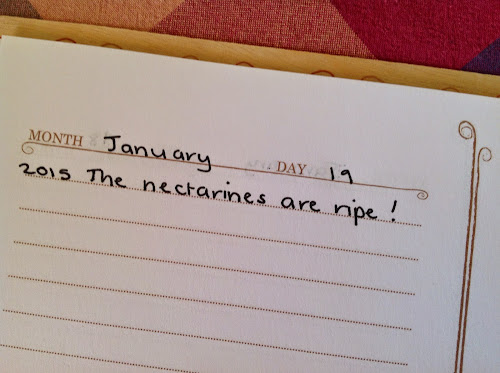 MONTH January DAY 19
2015 The nectarines are ripe !